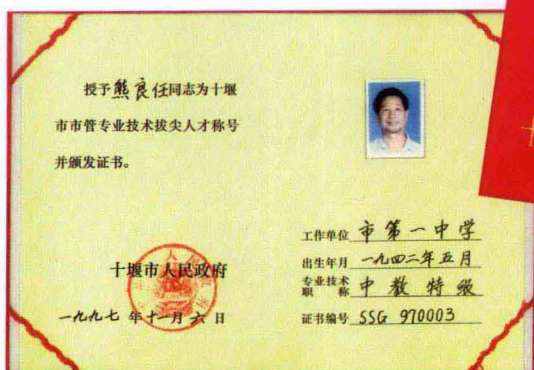 授予熊良任同志为十堰
市市管专业技术拔尖人才称号
并颁发证书。
十堰市人民政府
一九九七年十一月六日
工作单位 市第一中学
出生年月 一九四二年五月
专业技术职称 中教特级
证书编号 SSG 970003